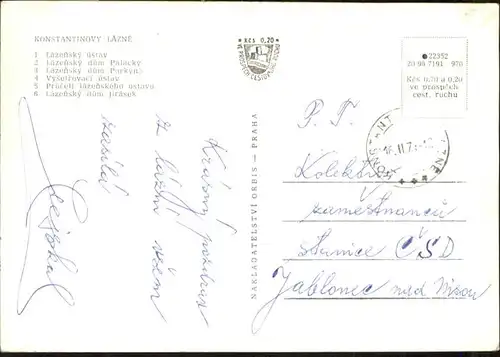 KONSTANTINOVY LÁZNĚ
1 Lázeňský ústav
2 Lázeňský dům Palacký
3 Lázeňský dům Purkyně
4 Vyšetřovací ústav
5 Průčelí lázeňského ústavu
6 Lázeňský dům Jirásek
Kčs 0,20
VE PROSPĚCH CESTOVNÍHO RUCHU
22352
20 96 7191 970
Kčs 0,10 a 0,20
ve prospěch
cest. ruchu
NAKLADATELSTVÍ ORBIS – PRAHA
Krásný pozdrav
z lázní všem
zasílá
P. T.
Kolektiv
zaměstnanců
stanice ČSD
Jablonec nad Nisou